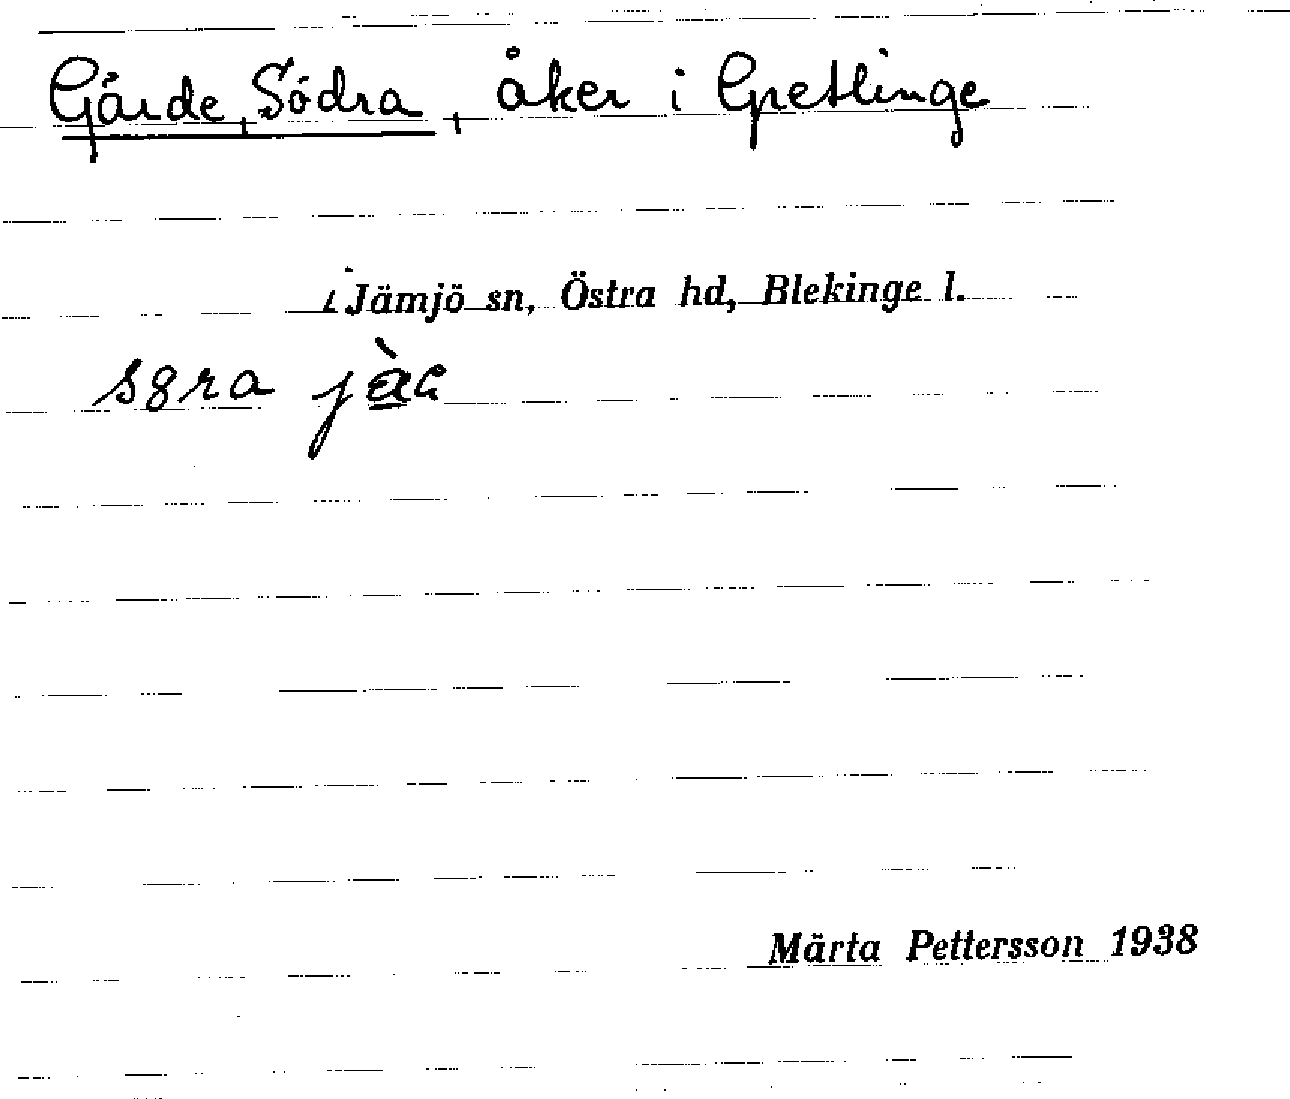 Gärde, Södra, åker i Gretlinge
i Jämjö sn, Östra hd, Blekinge l.
Märta Pettersson 1938